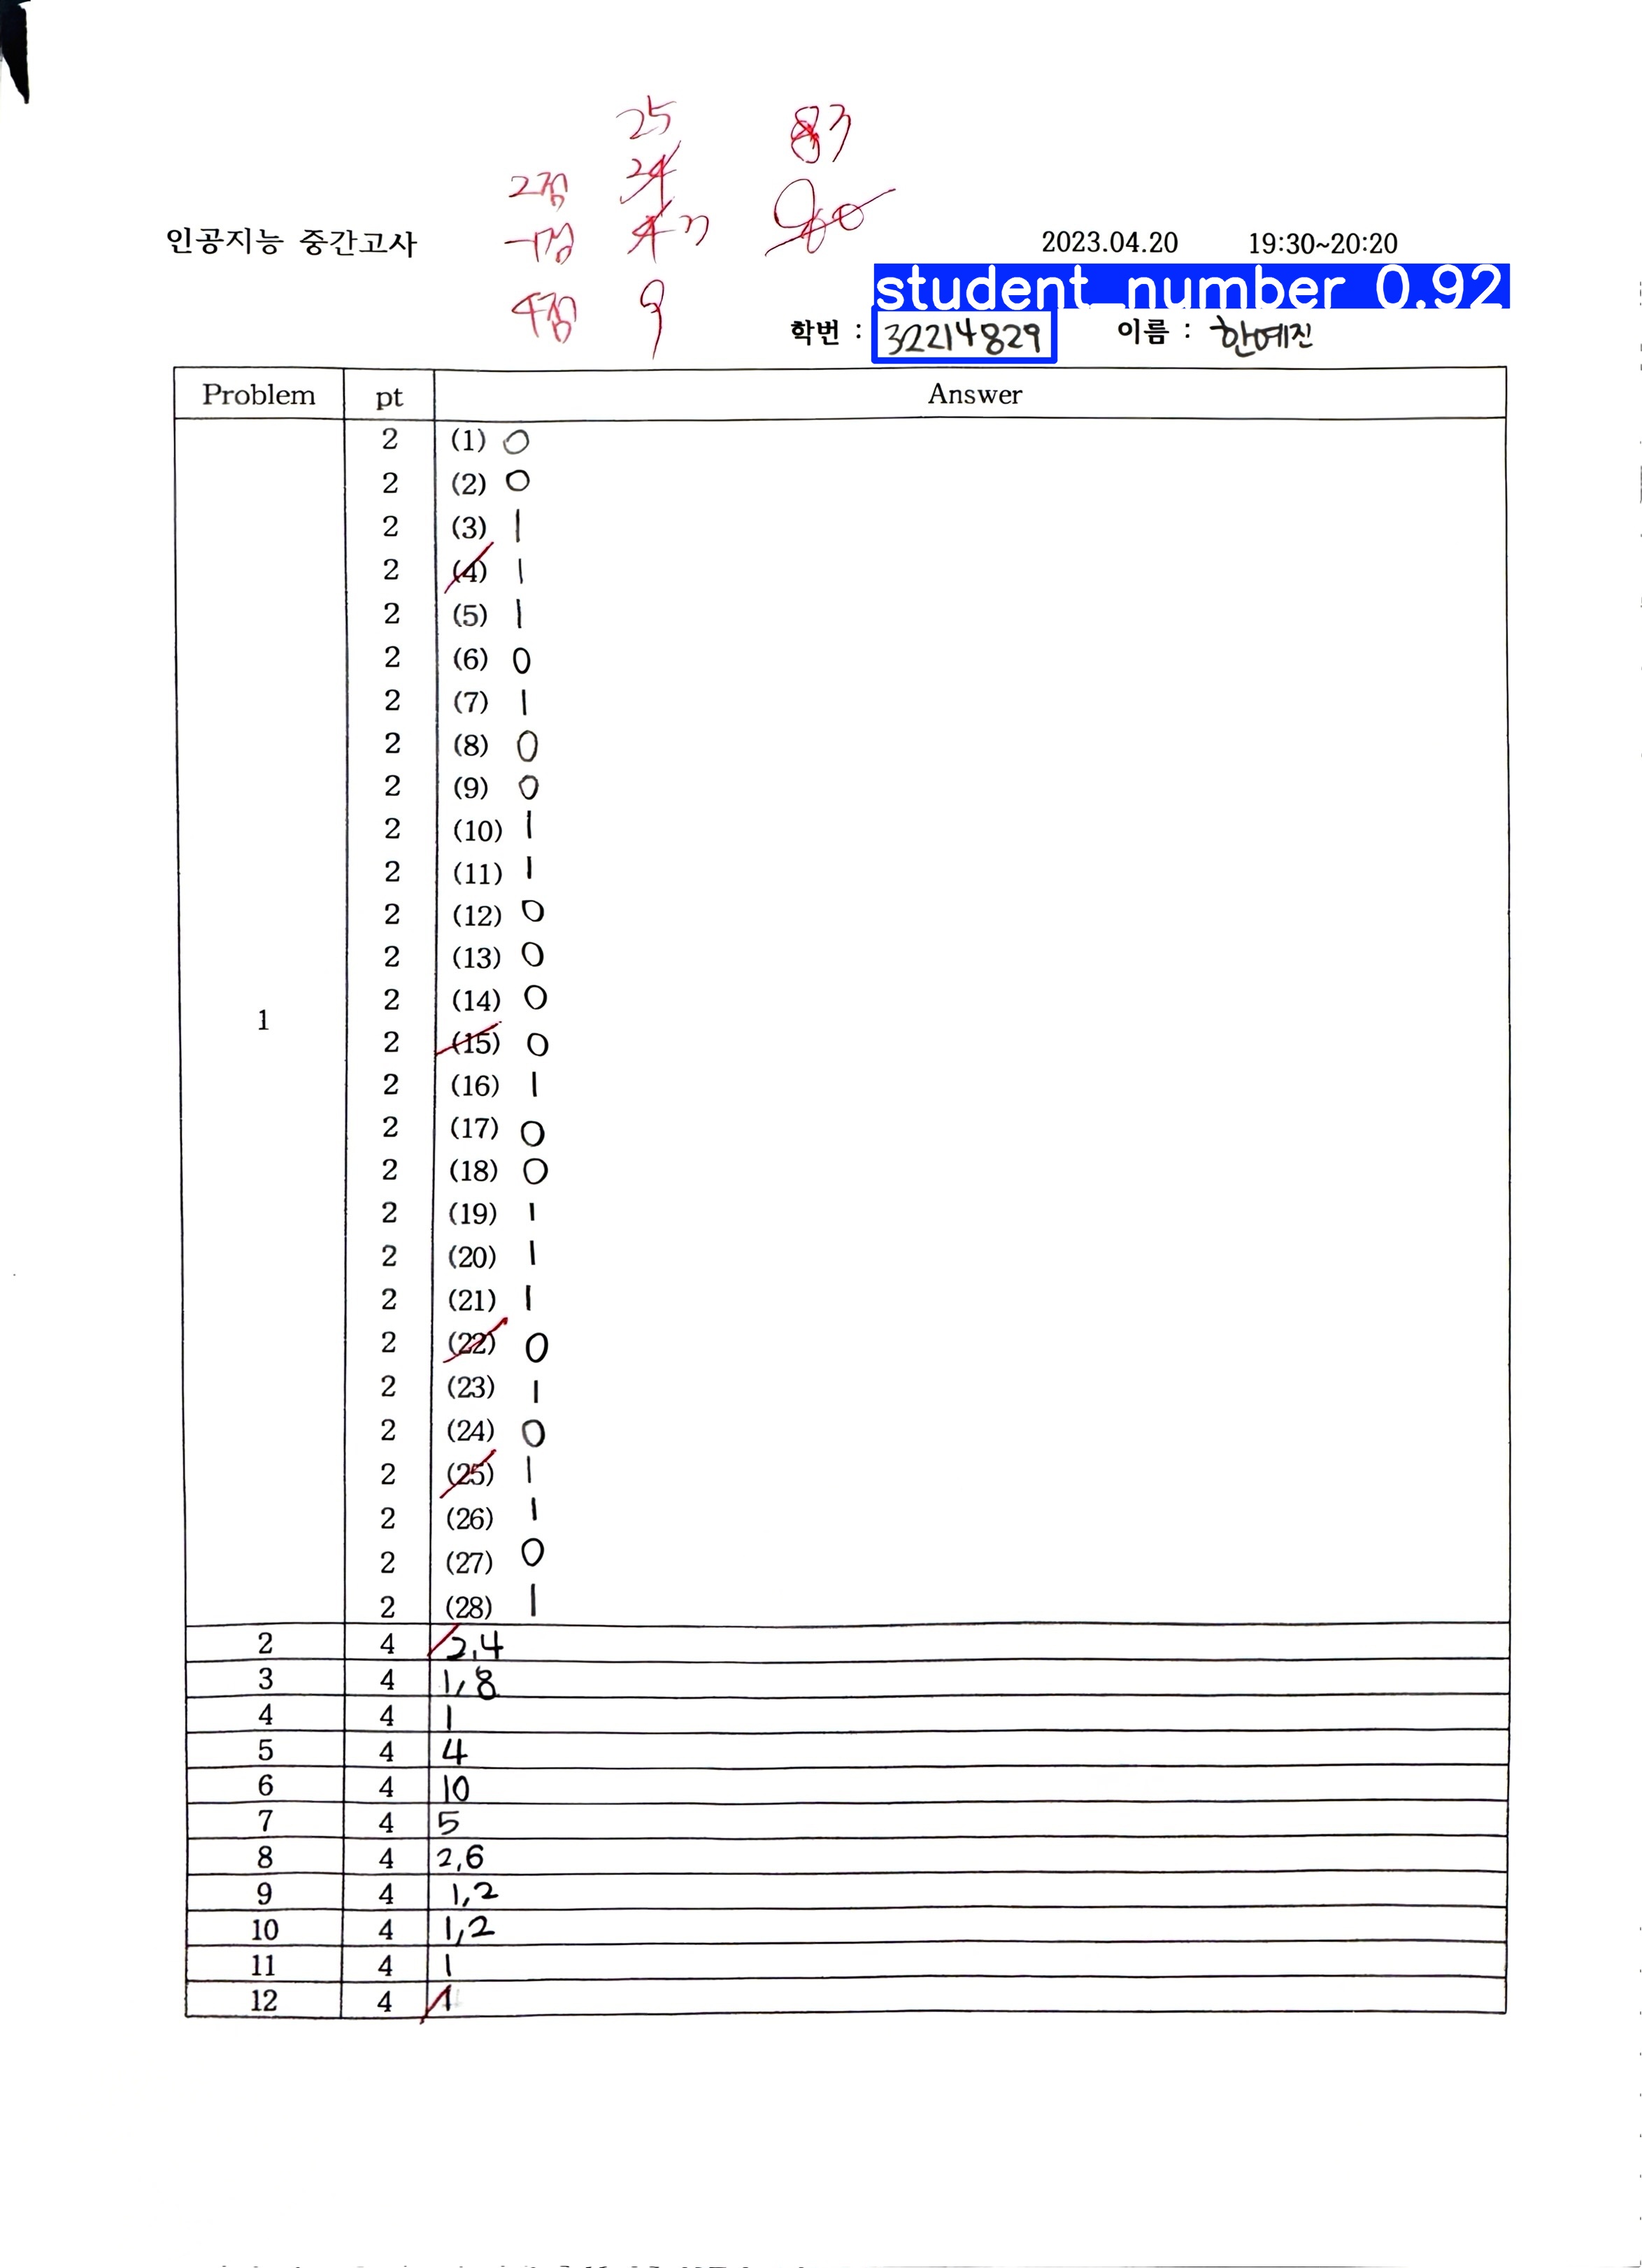 25
83
2점 24
-1점 4 3
인공지능 중간고사 2023.04.20 19:30~20:20
student_number 0.92
4점 9
학번 : 32214829 이름 : 한예진
Problem pt Answer
1
2 (1) 0
2 (2) 0
2 (3) 1
2 (4) 1
2 (5) 1
2 (6) 0
2 (7) 1
2 (8) 0
2 (9) 0
2 (10) 1
2 (11) 1
2 (12) 0
2 (13) 0
2 (14) 0
2 (15) 0
2 (16) 1
2 (17) 0
2 (18) 0
2 (19) 1
2 (20) 1
2 (21) 1
2 (22) 0
2 (23) 1
2 (24) 0
2 (25) 1
2 (26) 1
2 (27) 0
2 (28) 1
2 4 2,4
3 4 1,8
4 4 1
5 4 4
6 4 10
7 4 5
8 4 2,6
9 4 1,2
10 4 1,2
11 4 1
12 4 1